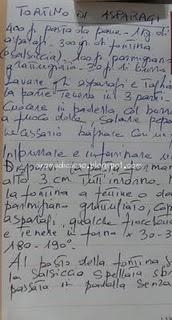 TORTINO DI ASPARAGI
400 gr. pasta da pane - 1 Kg di
asparagi - 300 gr. di fontina
(o salsiccia) 100 gr. parmigiano
grattugiato - 30 gr. di burro
Lavare gli asparagi e taglia
la parte tenera in 3 parti.
Cuocere in padella col burro
a fuoco dolce, salare, pepa
necessario bagnare con un
Infarinare e
Disporre la in forma
alto 3 cm. tutt'intorno.
la fontina a fettine o da
parmigiano grattugiato, cop
asparagi, qualche fiocchetto
e tenere in forno x 30-3
180-190°.
Al posto della fontina s
la salsiccia spellata sbr
passata in padella senza